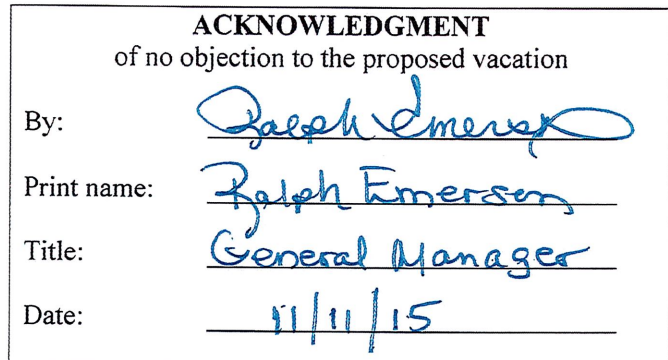 ACKNOWLEDGMENT
of no objection to the proposed vacation
By: Ralph Emerson
Print name: Ralph Emerson
Title: General Manager
Date: 11/11/15